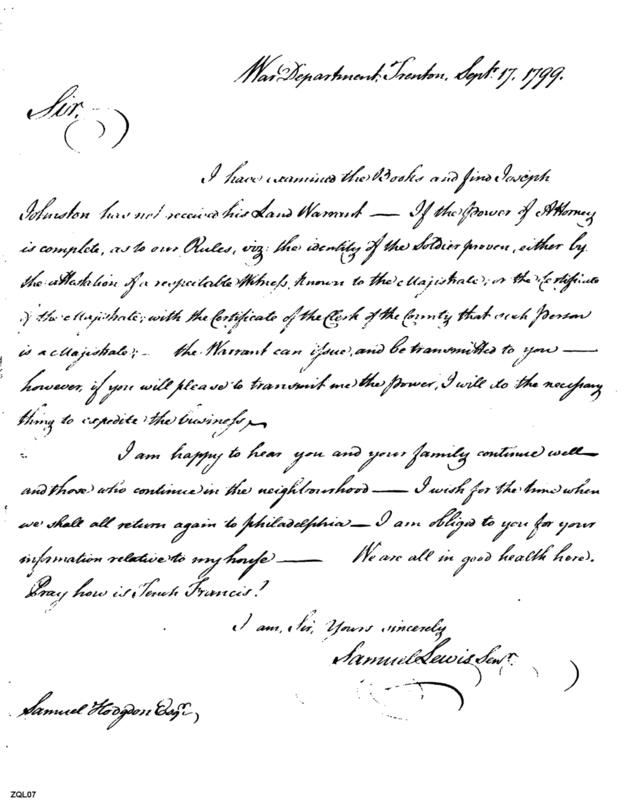 War Department, Trenton, Septr. 17. 1799.
Sir,
I have examined the Books and find Joseph
Johnston has not received his Land Warrant — If the Power of Attorney
is complete, as to our Rules, viz: the identity of the Soldier proven, either by
the attestation of a respectable Witness, known to the Magistrate; or the Certificate
of the Magistrate; with the Certificate of the Clerk of the County that such Person
is a Magistrate; – the Warrant can issue, and be transmitted to you —
however, if you will please to transmit me the Power, I will do the necessary
thing to expedite the business.
I am happy to hear you and your family continue well —
and those who continue in the neighbourhood — I wish for the time when
we shall all return again to philadelphia — I am obliged to you for your
information relative to my house — We are all in good health here.
Pray how is Tench Francis?
I am, Sir, Yours sincerely
Samuel Lewis Senr.
Samuel Hodgdon Esqr.
ZQL07